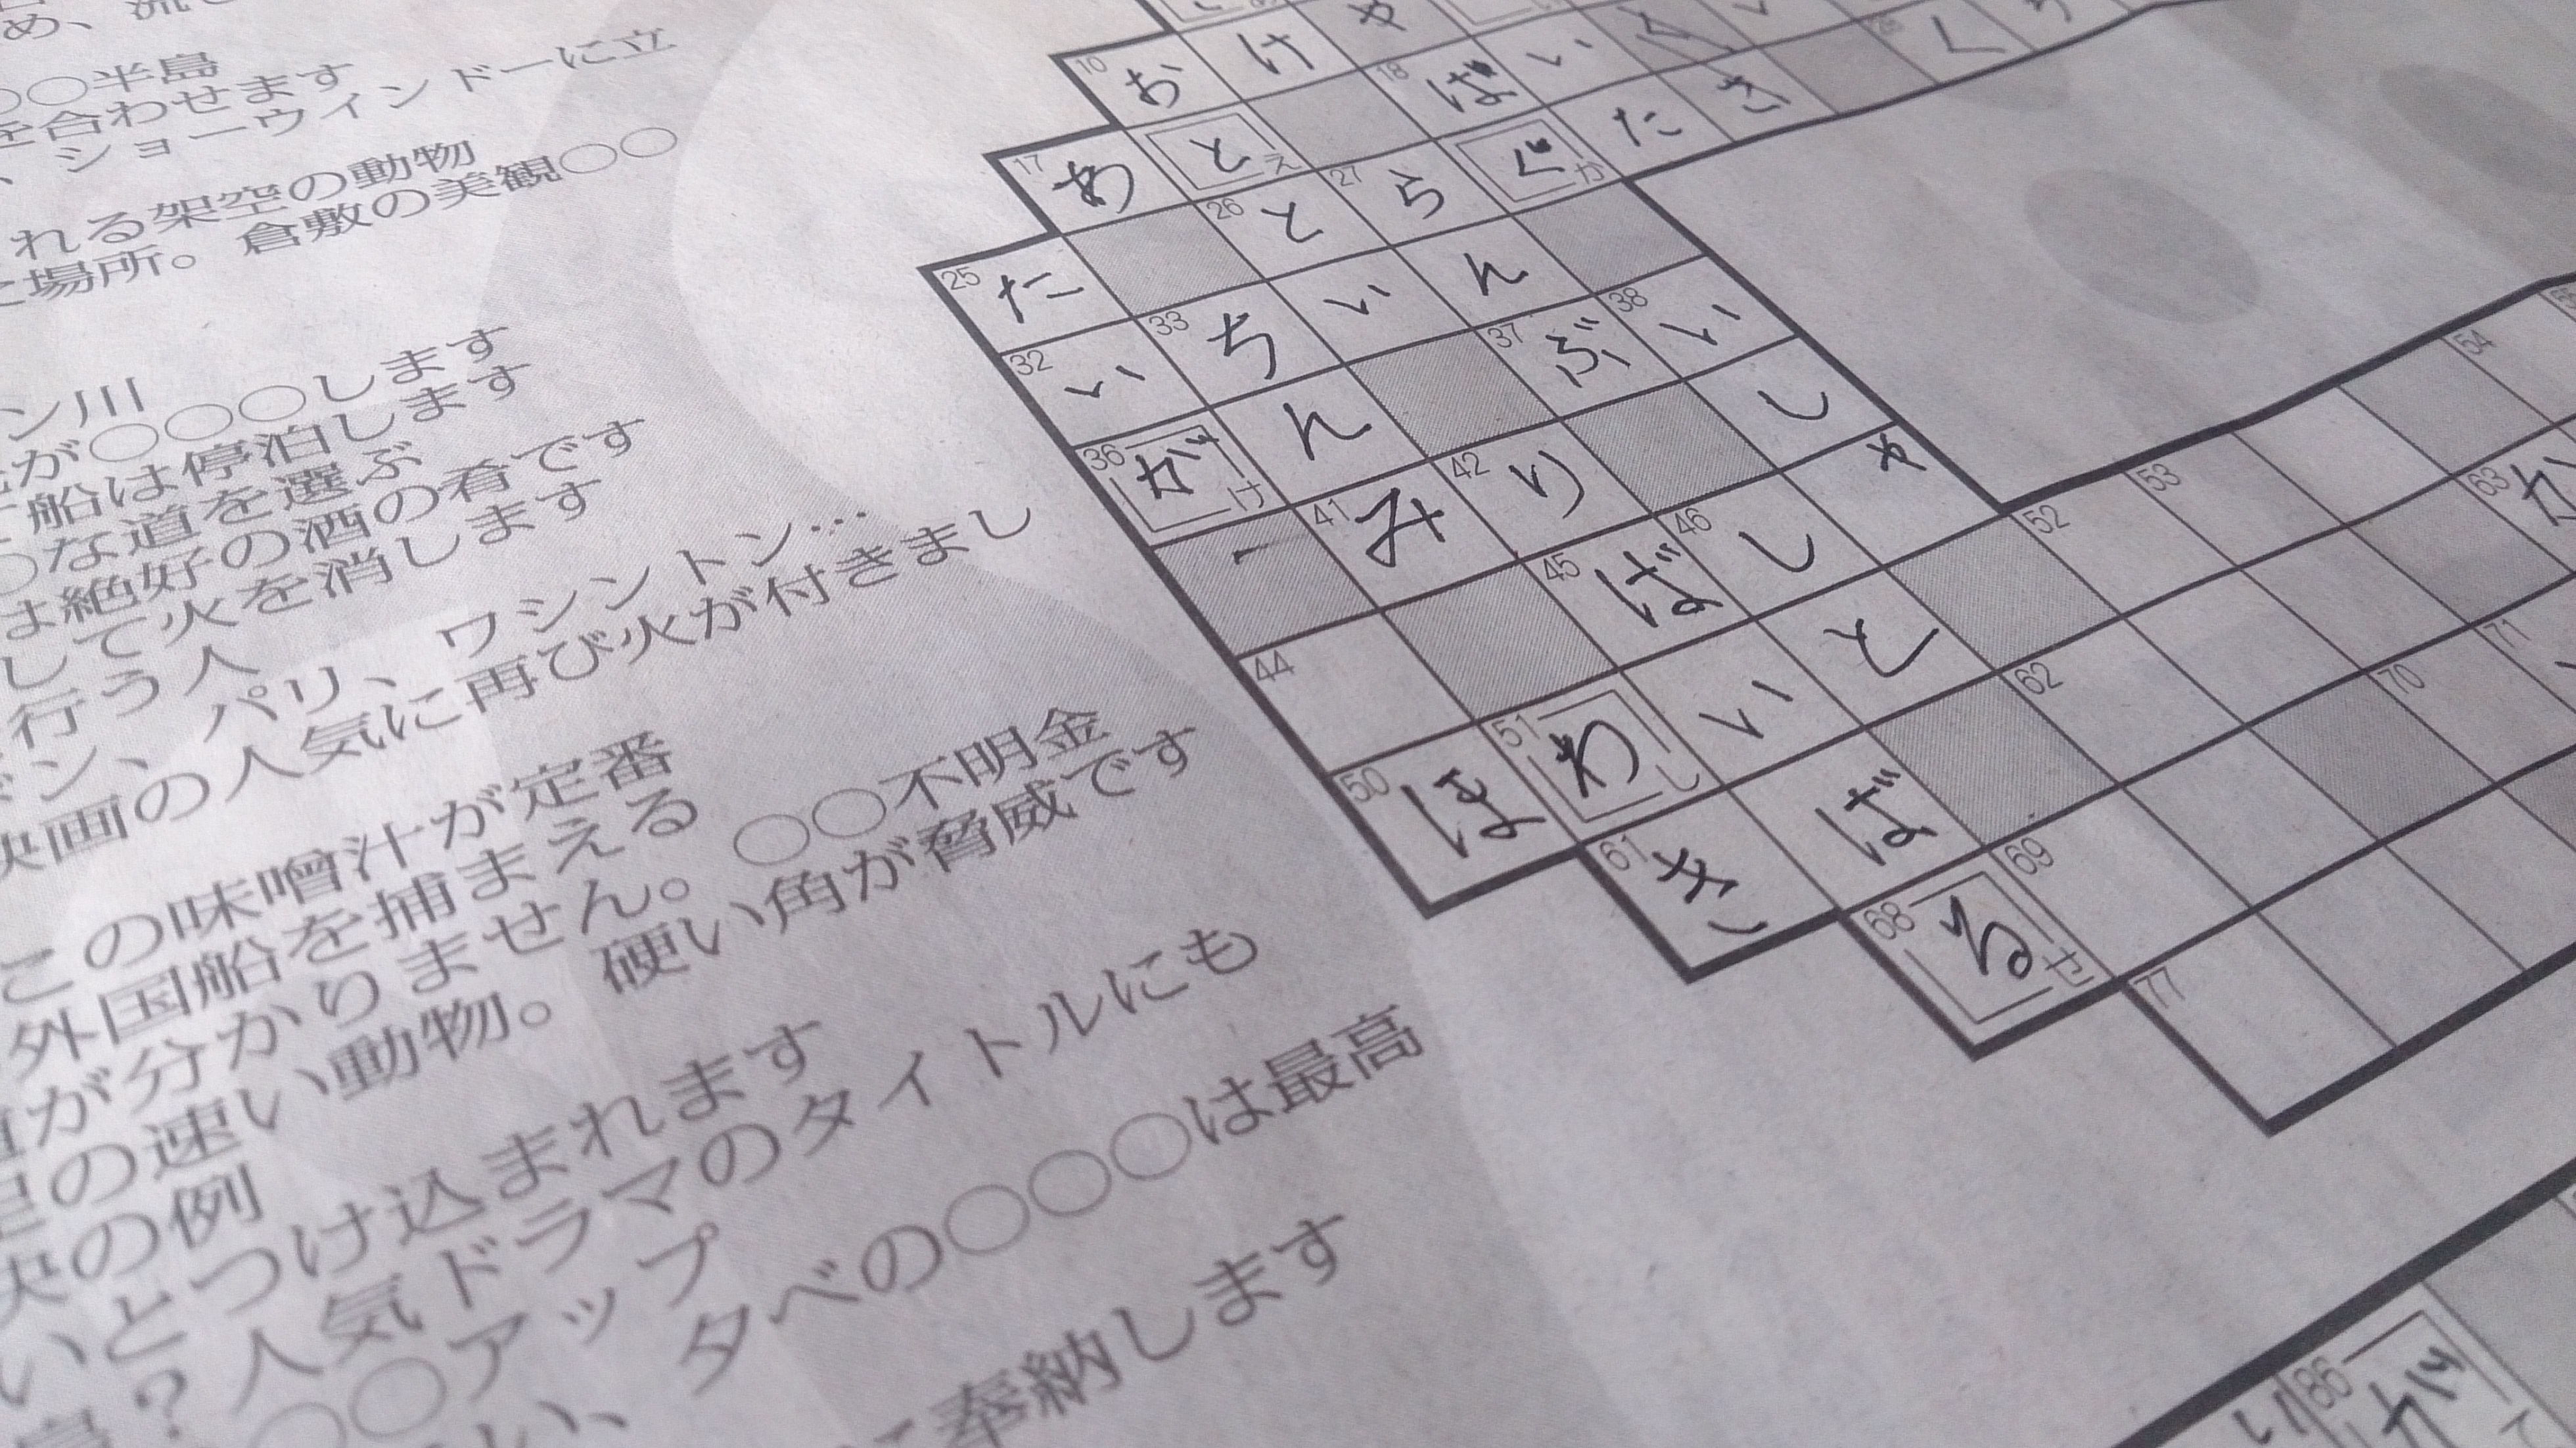 ○○半島
を合わせます
ショーウィンドーに立
れる架空の動物
場所。倉敷の美観○○
ン川
が○○○します
船は停泊します
な道を選ぶ
絶好の酒の肴です
して火を消します
行う人
ン、パリ、ワシントン…
映画の人気に再び火が付きまし
この味噌汁が定番
外国船を捕まえる
が分かりません。○○不明金
の速い動物。硬い角が脅威です
の例
いとつけ込まれます
？人気ドラマのタイトルにも
○○アップ
い、夕べの○○○は最高
に奉納します
10 お け や
17 あ と え 18 ば い
25 た 26 と 27 ら ぐ か た き 28 く
32 い 33 ち い ん
36 が け ん 37 ぶ 38 い
41 み 42 り し
44 45 ば 46 し ゃ
50 ほ 51 わ し い と 52 53 54
61 き ば 62 63 か
68 る せ 69 70 71
77
い 86 が て